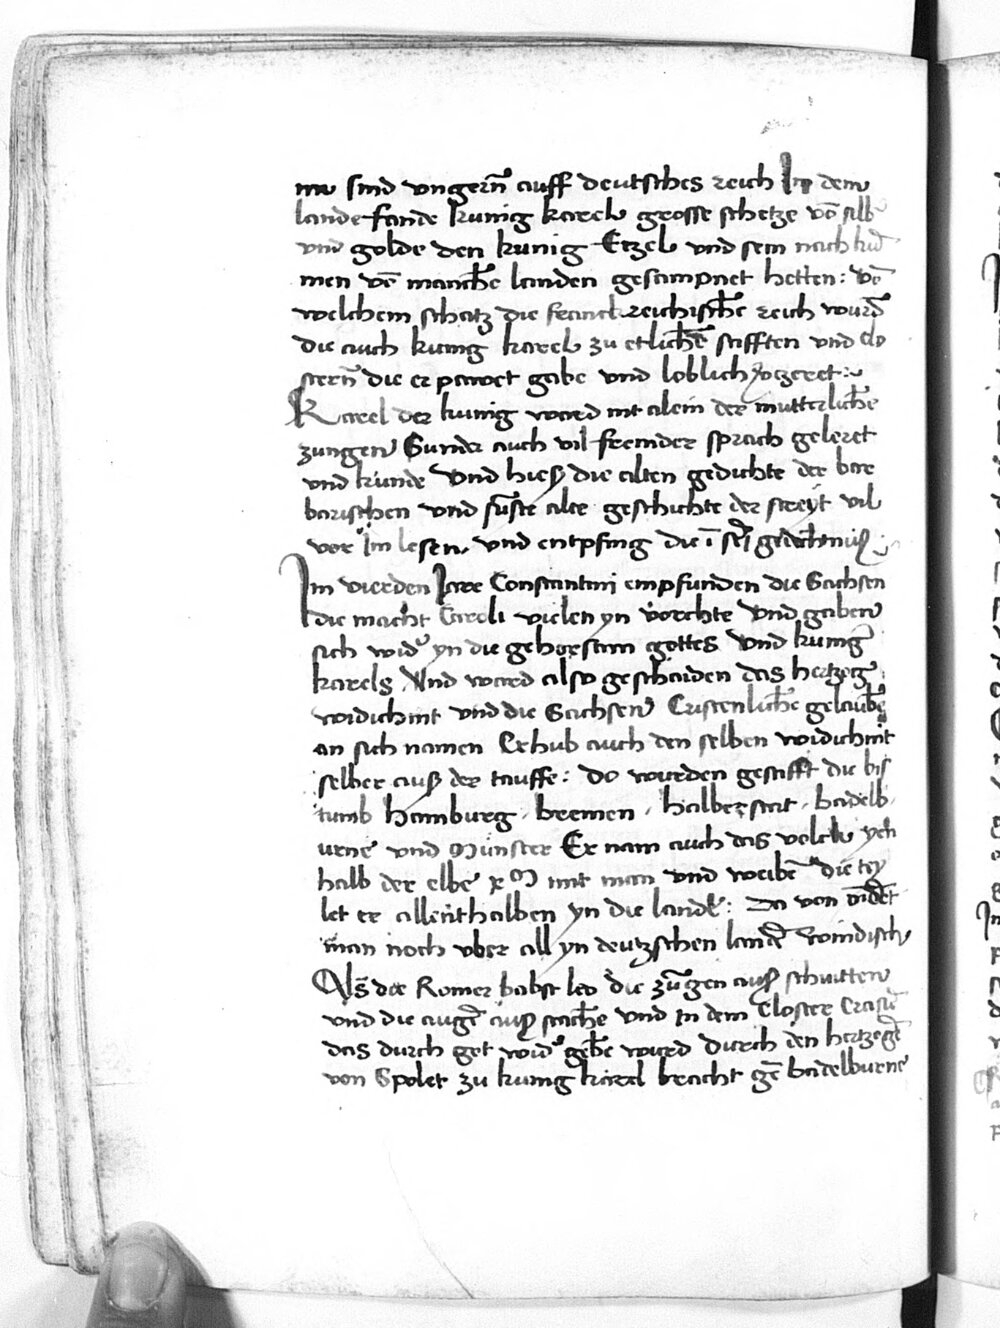 nu sind vngern̄ auff deutsches reich In dem
lande fande kunig karel grosse schetze vō silb
vnd golde den kunig Etzel vnd sein nach kū
men vō manchē landen gesampnet hetten: vō
welchem schatz die franckreichischē reich wurdn̄
die auch kunig karel zu etlichē stifften vnd clo
stern̄ die er pawet gabe vnd loblich zyeret:
Karel der kunig ward nit alein der mutterlichē
zungen Sunder auch vil fremder sprach geleret
vnd kunde Vnd hieß die alten gedichte der bar
barischen vnd sunste alte geschichte der streyt vil
vor im lesen vnd entpfing die ī sein gedechtnuß
Im vierden Jare Constantini empfunden die Sachsen
die macht Caroli vielen yn vorchte Vnd gaben
sich wider yn die gehorsam gottes Vnd kunig
karels Vnd ward also geschaiden das hertzog
widichint vnd die Sachsen Cristenlichē gelaubē
an sich namen Erhub auch den selben widichint
selber auß der tauffe: do wurden gestifft die bis
tumb Hamburg bremen halberstat badelb
urne vnd Munster Er nam auch das volck yen
halb der elbe x M mit man vnd weibē die tey
let er allenthalben yn die lande: Da von vindet
man noch vber all yn deutzschen lande windisch
Als die Romer babst leo die zungen auß schnitten
vnd die augen auß stachē Vnd in dem Closter Erasm̄
das durch get wider gebē ward durch den hertzogē
von Spolet zu kunig karel bracht gē badelburne